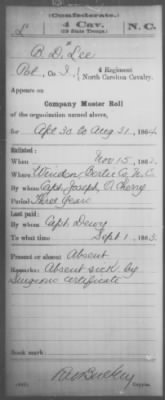 (Confederate.)
L 4 Cav. N. C.
(59 State Troops.)
B. D. Lee
Pvt., Co. I, 4 Regiment
North Carolina Cavalry.
Appears on
Company Muster Roll
of the organization named above,
for Sept 30 to Aug 31, 1864
Enlisted:
When Nov 15, 186
Where Windsor, Bertie Co. N. C.
By whom Capt. Joseph O. Cherry
Period Three Years
Last paid:
By whom Capt. Dewey
To what time Sept 1, 1863.
Present or absent Absent
Remarks: Absent sick by
Surgeons certificate
Book mark:
(642)
Copyist.